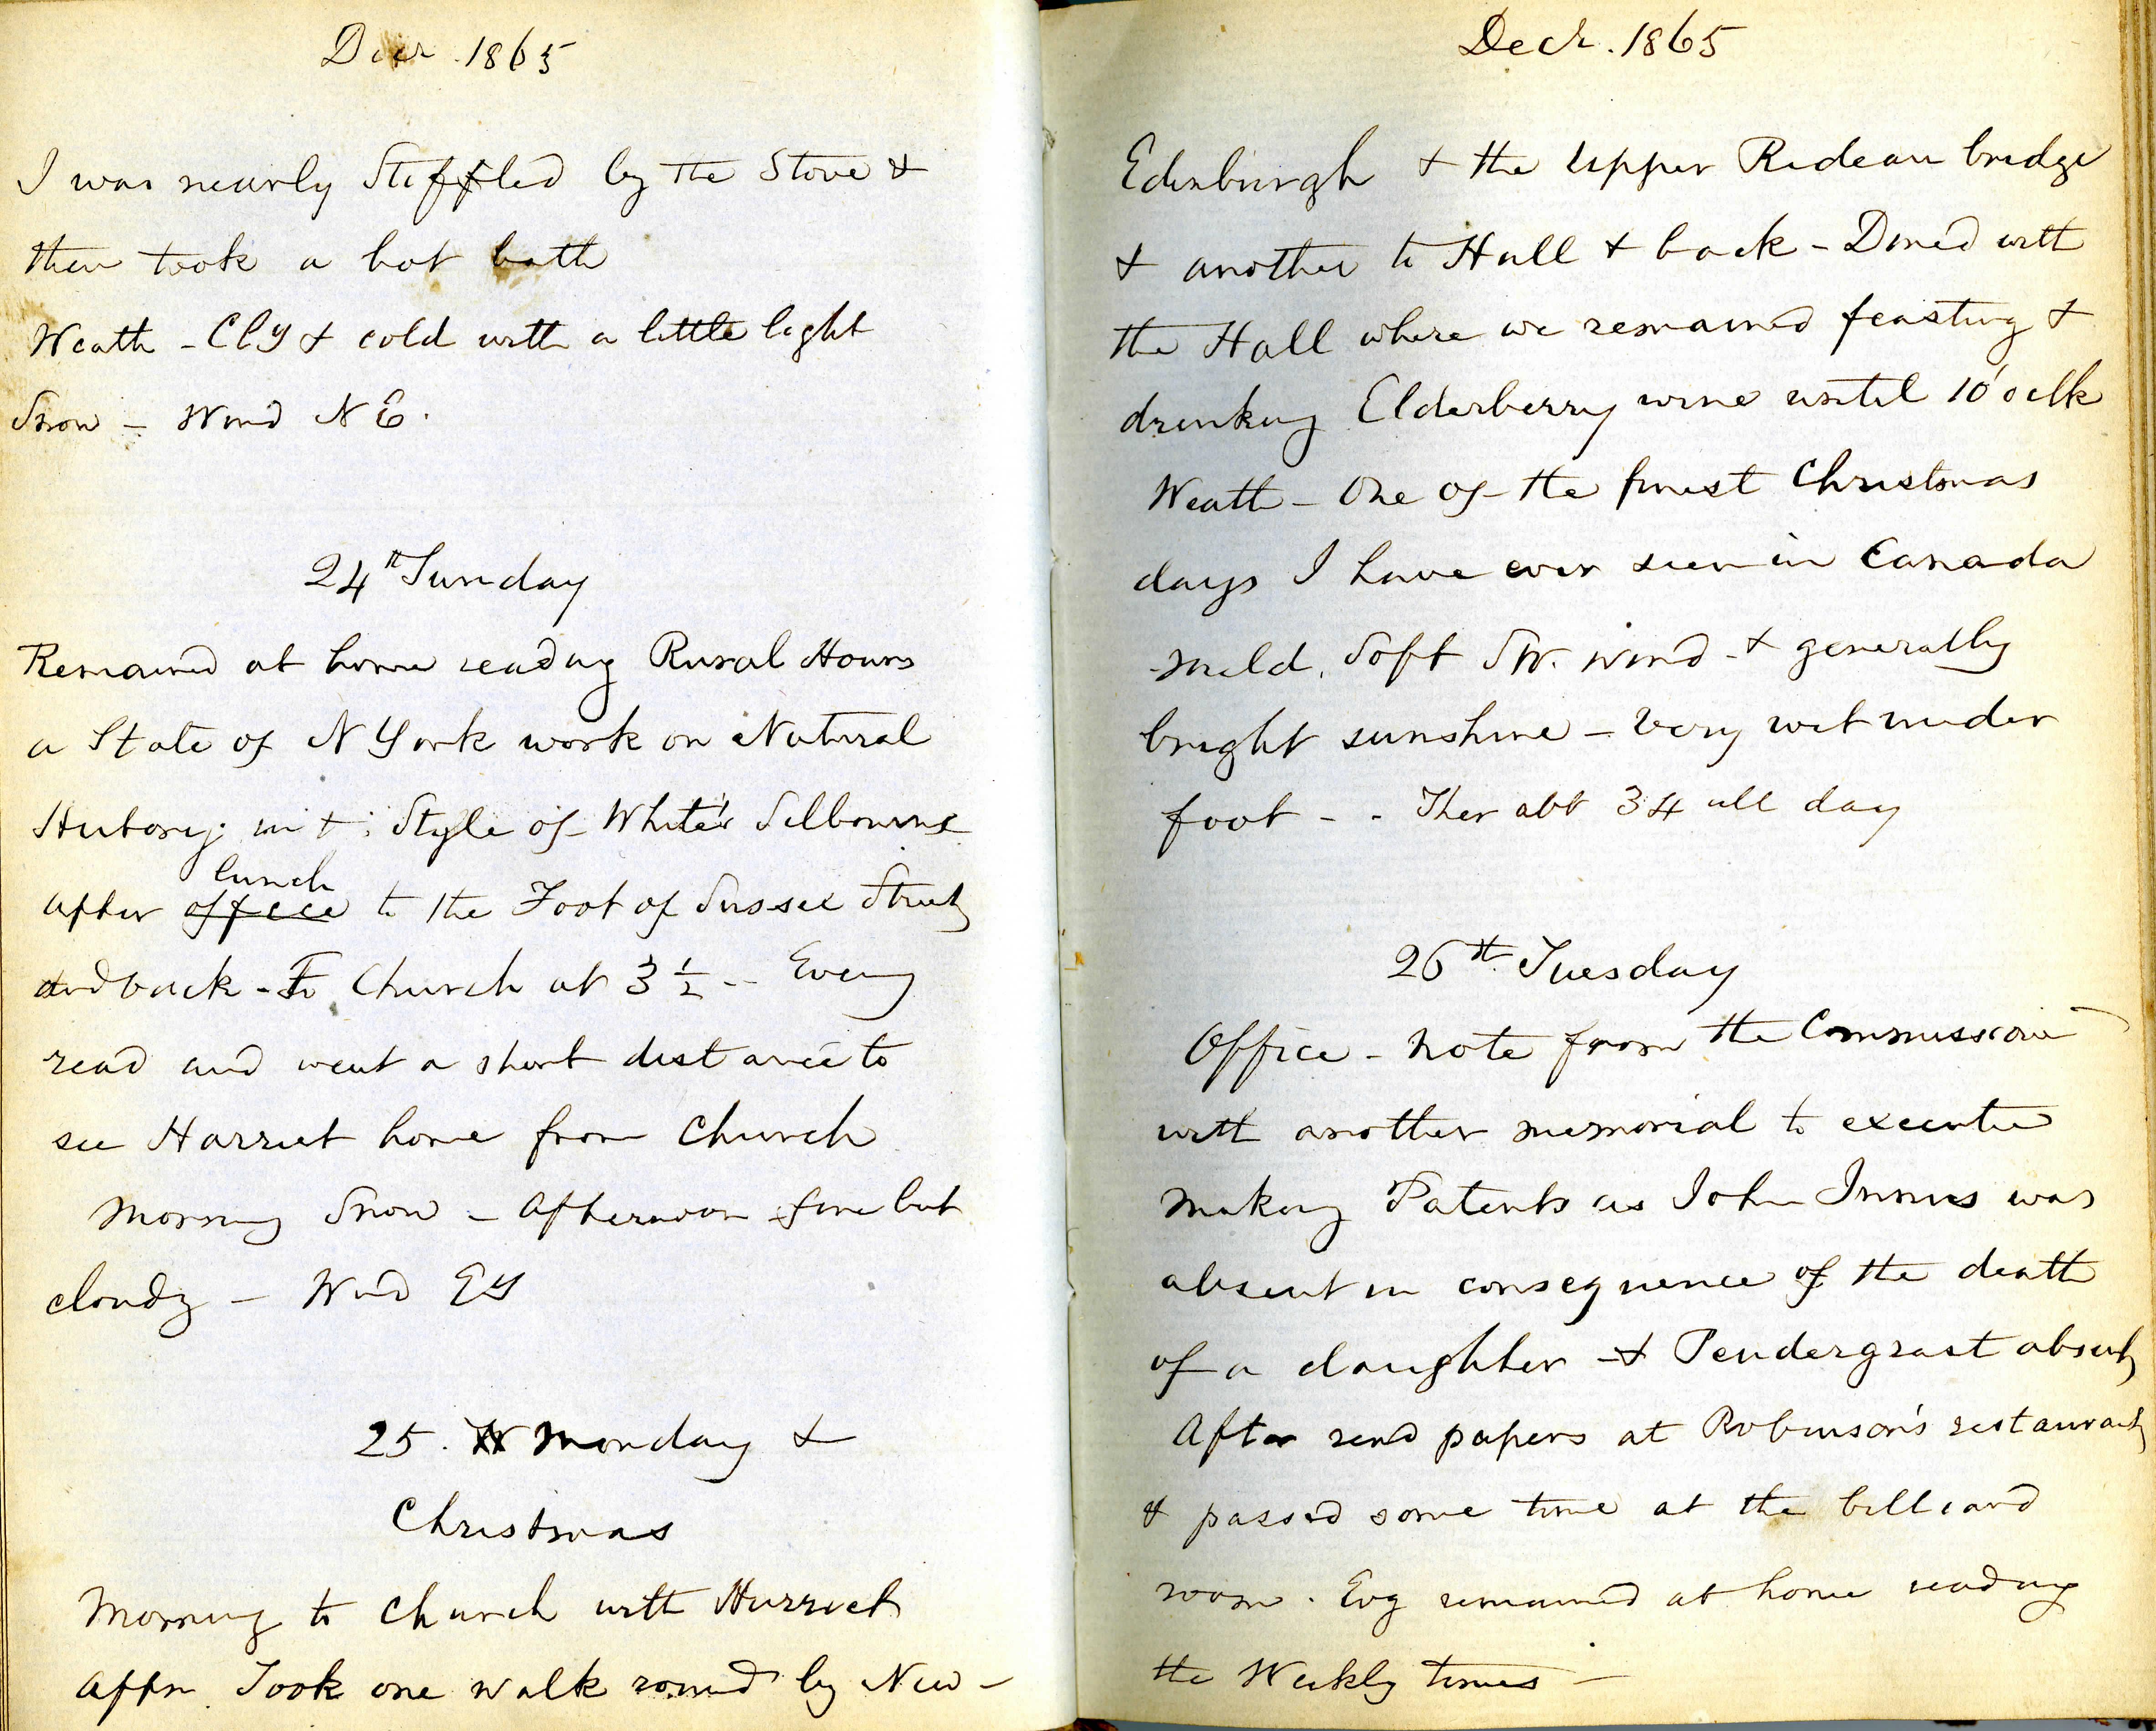 Decr. 1865
I was nearly Stiffled by the Stove &
then took a hot bath
Weath - Cly & cold with a little light
Snow - Wind N E.
24th Sunday
Remained at home reading Rural Hours
a State of N York work on Natural
History in t: Style of White's Selbourne
lunch
after office to the Foot of Sussex Street
and back - To Church at 3 1/2 -- Eveng
read and went a short distance to
see Harriet home from Church
Morning Snow - Afternoon fine but
cloudy - Wind Ey
25. Monday &
Christmas
Morning to Church with Harriet
Aftn Took one walk round by New -
Decr. 1865
Edinburgh & the Upper Rideau bridge
& another to Hull & back - Dined with
the Hall where we remained feasting &
drinking Elderberry wine until 10 o'clk
Weath - One of the finest Christmas
days I have ever seen in Canada
mild, Soft SW. wind - & generally
bright sunshine - very wet under
foot - - Ther abt 34 all day
26th Tuesday
Office - Note from the Commissioner
with another memorial to execute
making Patents as John Innes was
absent in consequence of the death
of a daughter - & Pendergrast absent
After read papers at Robinson's restaurant
& passed some time at the billiard
room. Evg remained at home reading
the Weekly times -